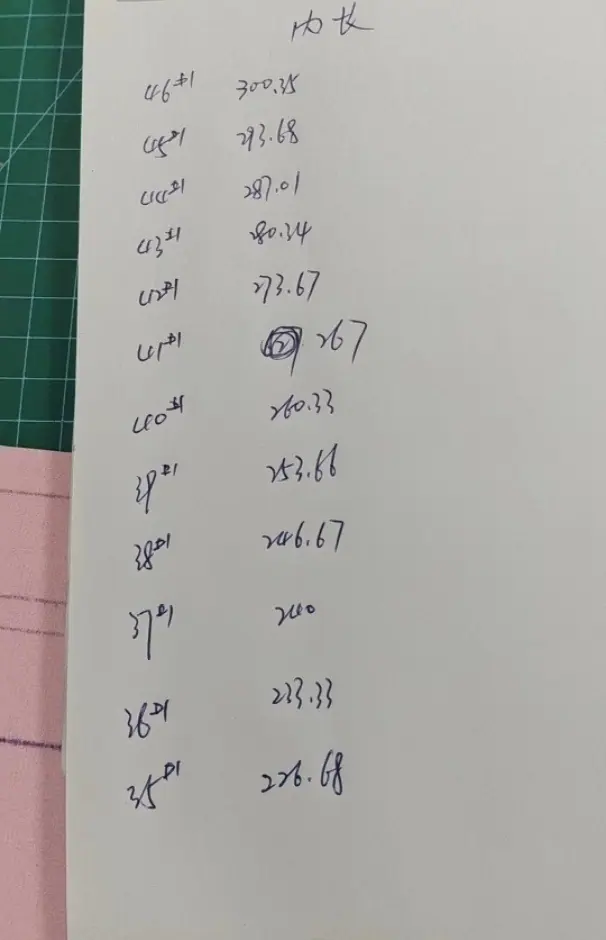 内长
46# 300.35
45# 293.68
44# 287.01
43# 280.34
42# 273.67
41# 267
40# 260.33
39# 253.66
38# 246.67
37# 240
36# 233.33
35# 226.68